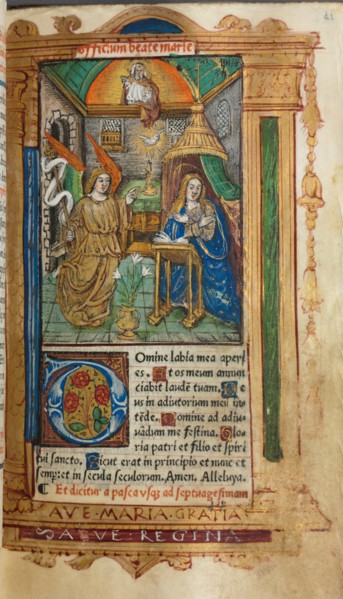 officium beate marie
Domine labia mea aperi
es. Et os meum annun
ciabit laudē tuam. De
us in adiutorium meū in
tēde. Domine ad adiu
uādum me festina. Glo
ria patri et filio et spiri
tui sancto. Sicut erat in principio et nunc et
semp: et in secula seculorum. Amen. Alleluya.
¶ Et dicitur a pasca vsq; ad septuagesimam
AVE·MARIA·GRATIA
SALVE·REGINA